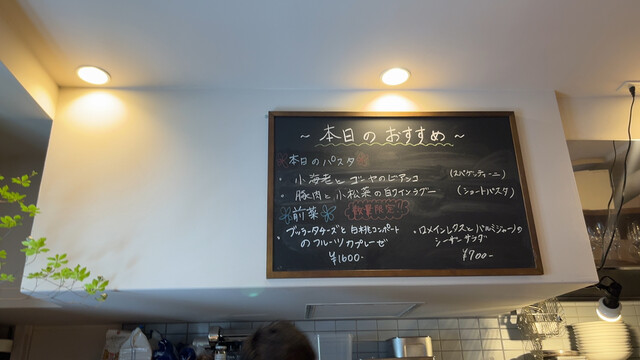 ～本日のおすすめ～
本日のパスタ
・小海老とゴーヤのビアンコ (スパゲッティーニ)
・豚肉と小松菜の白ワインラグー (ショートパスタ)
前菜 数量限定
・ブッラータチーズと白桃コンポート
のフルーツカプレーゼ
¥1600-
・ロメインレタスとパルミジャーノの
シーザーサラダ
¥700-